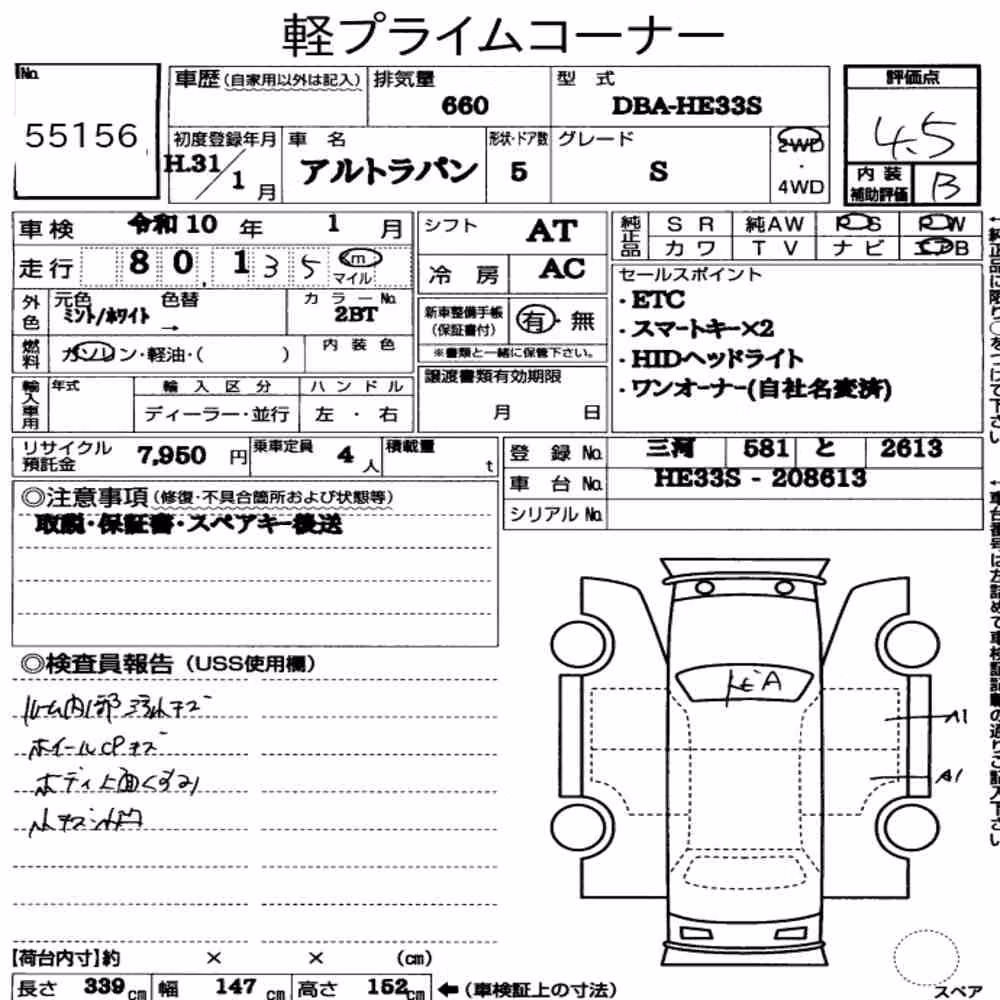 軽プライムコーナー
No.
55156
車歴 (自家用以外は記入)
排気量
660
型 式
DBA-HE33S
評価点
4.5
初度登録年月
H.31/1月
車 名
アルトラパン
形状・ドア数
5
グレード
S
2WD
・
4WD
内装補助評価
B
車検 令和10年 1月
走行 80,135 km マイル
シフト AT
冷房 AC
純正品
SR 純AW PS PW
カワ TV ナビ エアB
外色
元色 ミント/ホワイト
色替 →
カラーNo. 2BT
燃料
ガソリン・軽油・( )
内装色
新車整備手帳(保証書付)
有・無
※書類と一緒に保管下さい。
セールスポイント
・ETC
・スマートキー×2
・HIDヘッドライト
・ワンオーナー(自社名変済)
輸入車用
年式
輸入区分
ディーラー・並行
ハンドル
左・右
譲渡書類有効期限
月 日
リサイクル預託金 7,950円
乗車定員 4人
積載量 t
登録No. 三河 581 と 2613
車台No. HE33S - 208613
シリアルNo.
◎注意事項(修復・不具合箇所および状態等)
取説・保証書・スペアキー後送
◎検査員報告(USS使用欄)
ルーム内部汚れキズ
ホイールCPキズ
ボディ上面くすみ
小キズ小凹
A
A1
A1
←純正品に限り〇をつけて下さい
←車台番号は左詰めで車検証記載の通りご記入下さい
【荷台内寸】約 × × (cm)
長さ 339cm 幅 147cm 高さ 152cm ←(車検証上の寸法)
スペア